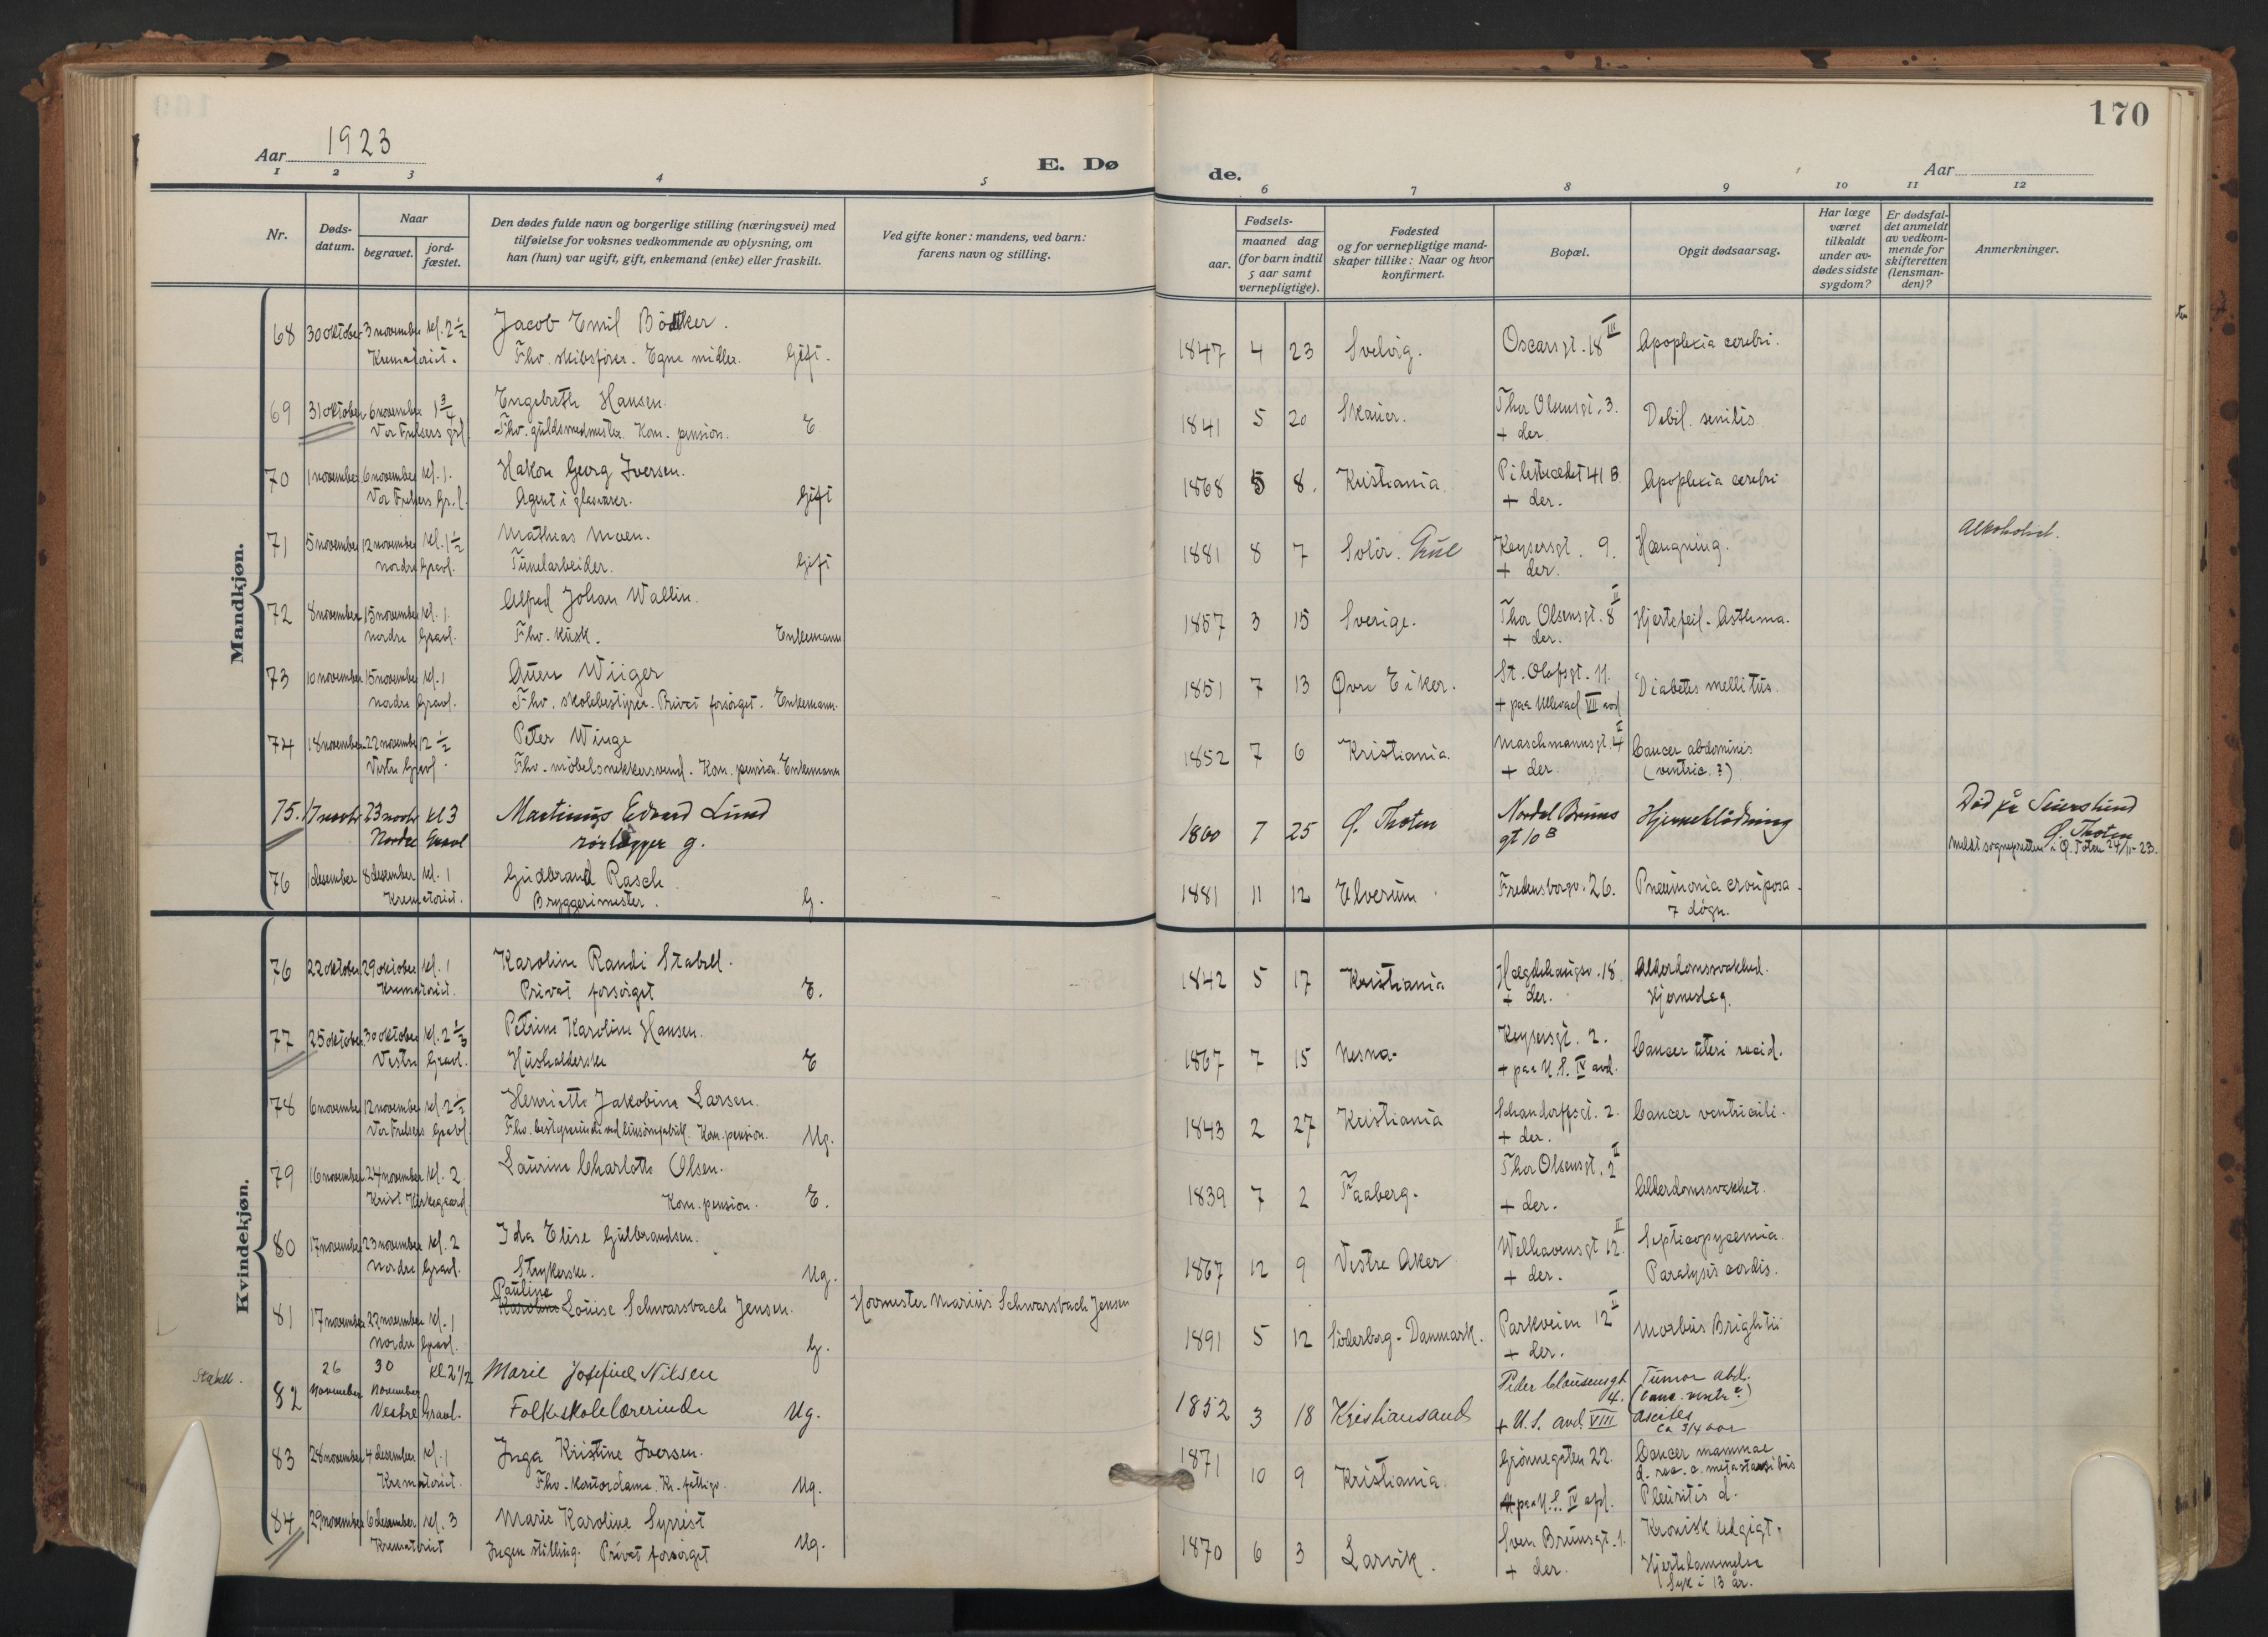 170
Aar 1923
E. Døde.
Aar
1 2 3 4 5 6 7 8 9 10 11 12
Nr.
Døds-
datum.
Naar
begravet.
jord-
fæstet.
Den dødes fulde navn og borgerlige stilling (næringsvei) med
tilføielse for voksnes vedkommende av oplysning, om
han (hun) var ugift, gift, enkemand (enke) eller fraskilt.
Ved gifte koner: mandens, ved barn:
farens navn og stilling.
Fødsels-
aar.
maaned dag
(for barn indtil
5 aar samt
vernepligtige).
Fødested
og for vernepligtige mand-
skaper tillike: Naar og hvor
konfirmert.
Bopæl.
Opgit dødsaarsag.
Har læge
været
tilkaldt
under av-
dødes sidste
sygdom?
Er dødsfal-
det anmeldt
av vedkom-
mende for
skifteretten
(lensman-
den)?
Anmerkninger.
Mandkjøn.
68 30 oktober 3 november kl. 2 1/2 Jacob Emil Bödtker. 1847 4 23 Svelvig. Oscarsgt. 18 III Apoplexia cerebri.
Krematoriet. Fhv. skibsfører. Egne midler. Gift.
69 31 oktober 6 november 1 3/4 Engebreth Hansen. 1841 5 20 Thor Olsensgt. 3. Debil. senilis
Vor Frelsers grl. Fhv. guldsmedmester. Kom. pension. E + der.
70 1 november 6 november kl. 1. Hakon Georg Iversen. 1868 5 8. Kristiania. Pilestrædet 41 B Apoplexia cerebri
Vor Frelsers Gr.l. Agent i glasvarer. Gift + der.
71 5 november 12 november kl. 1 1/2 Mathias Moen. 1881 8 7 Solör. Keysersgt. 9. Hængning. Alkoholist.
Nordre Gravl. Tünelarbeider. Gift + der.
72 8 november 15 november kl. 1. Alfred Johan Wallin. 1857 3 15 Sverige. Thor Olsensgt. 8 II Hjertefeil. Asthma.
Nordre Gravl. Fhv. kusk. Enkemann + der.
73 10 november 15 november kl. 1 Wiiger 1851 7 13 Øvre Eiker. St. Olafsgt. 11. Diabetes mellitus.
Nordre Gravl. Fhv. skolebestyrer. Privat forsörget. Enkemann. + paa Ullevaal VII avd
74 18 november 22 november 12 1/2 Peter Winge 1852 7 6 Kristiania. Maschmannsgt. 4 II Cancer abdominis
Vestre Gravl. Fhv. möbelsnekkersvend. Kom. pension. Enkemann + der. (ventric. ?)
75. 17 novbr 23 novbr kl 3 Martinius Edvard Lund 1860 7 25 Ø. Thoten Nordal Bruns Hjerneblödning Död på
Nordre Gravl rörlegger g. gt 10 B Ø. Thoten
meldt sognepresten i Ø. Toten 24/11-23.
76 1 desember 8 desember kl. 1 Gudbrand Rasch 1881 11 12 Elverum Fredensborgv. 26. Pneumonia crouposa.
Krematoriet. Bryggerimester. G. 7 dögn.
Kvindekjøn.
76 22 oktober 29 oktober kl. 1 Karoline Randi Stabell. 1842 5 17 Kristiania Hægdehaugsv. 18 Alderdomssvakhed.
Krematoriet. Privat forsörget E. + der. Hjerneslag.
77 25 oktober 30 oktober kl. 2 1/2 Petrine Karoline Hansen. 1867 7 15 Nesna. Keysersgt. 2. Cancer uteri recid.
Vestre Gravl. Husholderske E + paa U.S. IV avd.
78 6 november 12 november kl. 2 1/2 Henriette Jakobine Larsen. 1843 2 27 Kristiania Schandorffsgt. 2. Cancer ventriculi.
Vor Frelsers Gravl. Kom. pension. Ug. + der.
79 16 november 24 november kl. 2. Laurine Charlotte Olsen. 1839 7 2 Faaberg. Thor Olsensgt. 2 II Alderdomssvakhet.
Krist Kirkegaard Kom. pension. E. + der.
80 17 november 23 november kl. 2 Ida Elise Gulbrandsen. 1867 12 9 Vestre Aker Welhavensgt 12 II Septicopyaemia.
Nordre Gravl. Strykerske. Ug. + der. Paralysis cordis.
Pauline
81 17 november 22 november kl. 1 Karoline Louise Schwarsbach Jensen. Hovmester Marius Schwarsbach Jensen 1891 5 12 Sönderborg - Danmark. Parkveien 12 II Morbus Brightii
Nordre Gravl. G. + der.
Stabell.
82 26 november 30 november Kl 2 1/2 Marie Josefine Nilsen 1852 3 18 Kristiansand Peder Clausensgt 4. Tumor abd.
Vestre Gravl. Folkeskolelærerinde Ug. + U.S. avd. VIII (canc. ventr?)
ascites
ca 3/4 aar
83 28 november 4 desember kl. 1 Inga Kristine Iversen. 1871 10 9 Kristiania. Grönnegaten 22. Cancer mammae
Krematoriet. Fhv. kontordame. Ug. + paa U.S. IV afd. d. rec. c. metastasibus
Pleuritis d.
84 29 november 6 desember kl. 3 Marie Karoline Syrrist 1870 6 3 Larvik. Sven Brunsgt. 1. Kronisk ledgigt,
Krematoriet Ingen stilling. Privat forsörget Ug. + der. Hjertelammelse
Syk i 13 år.